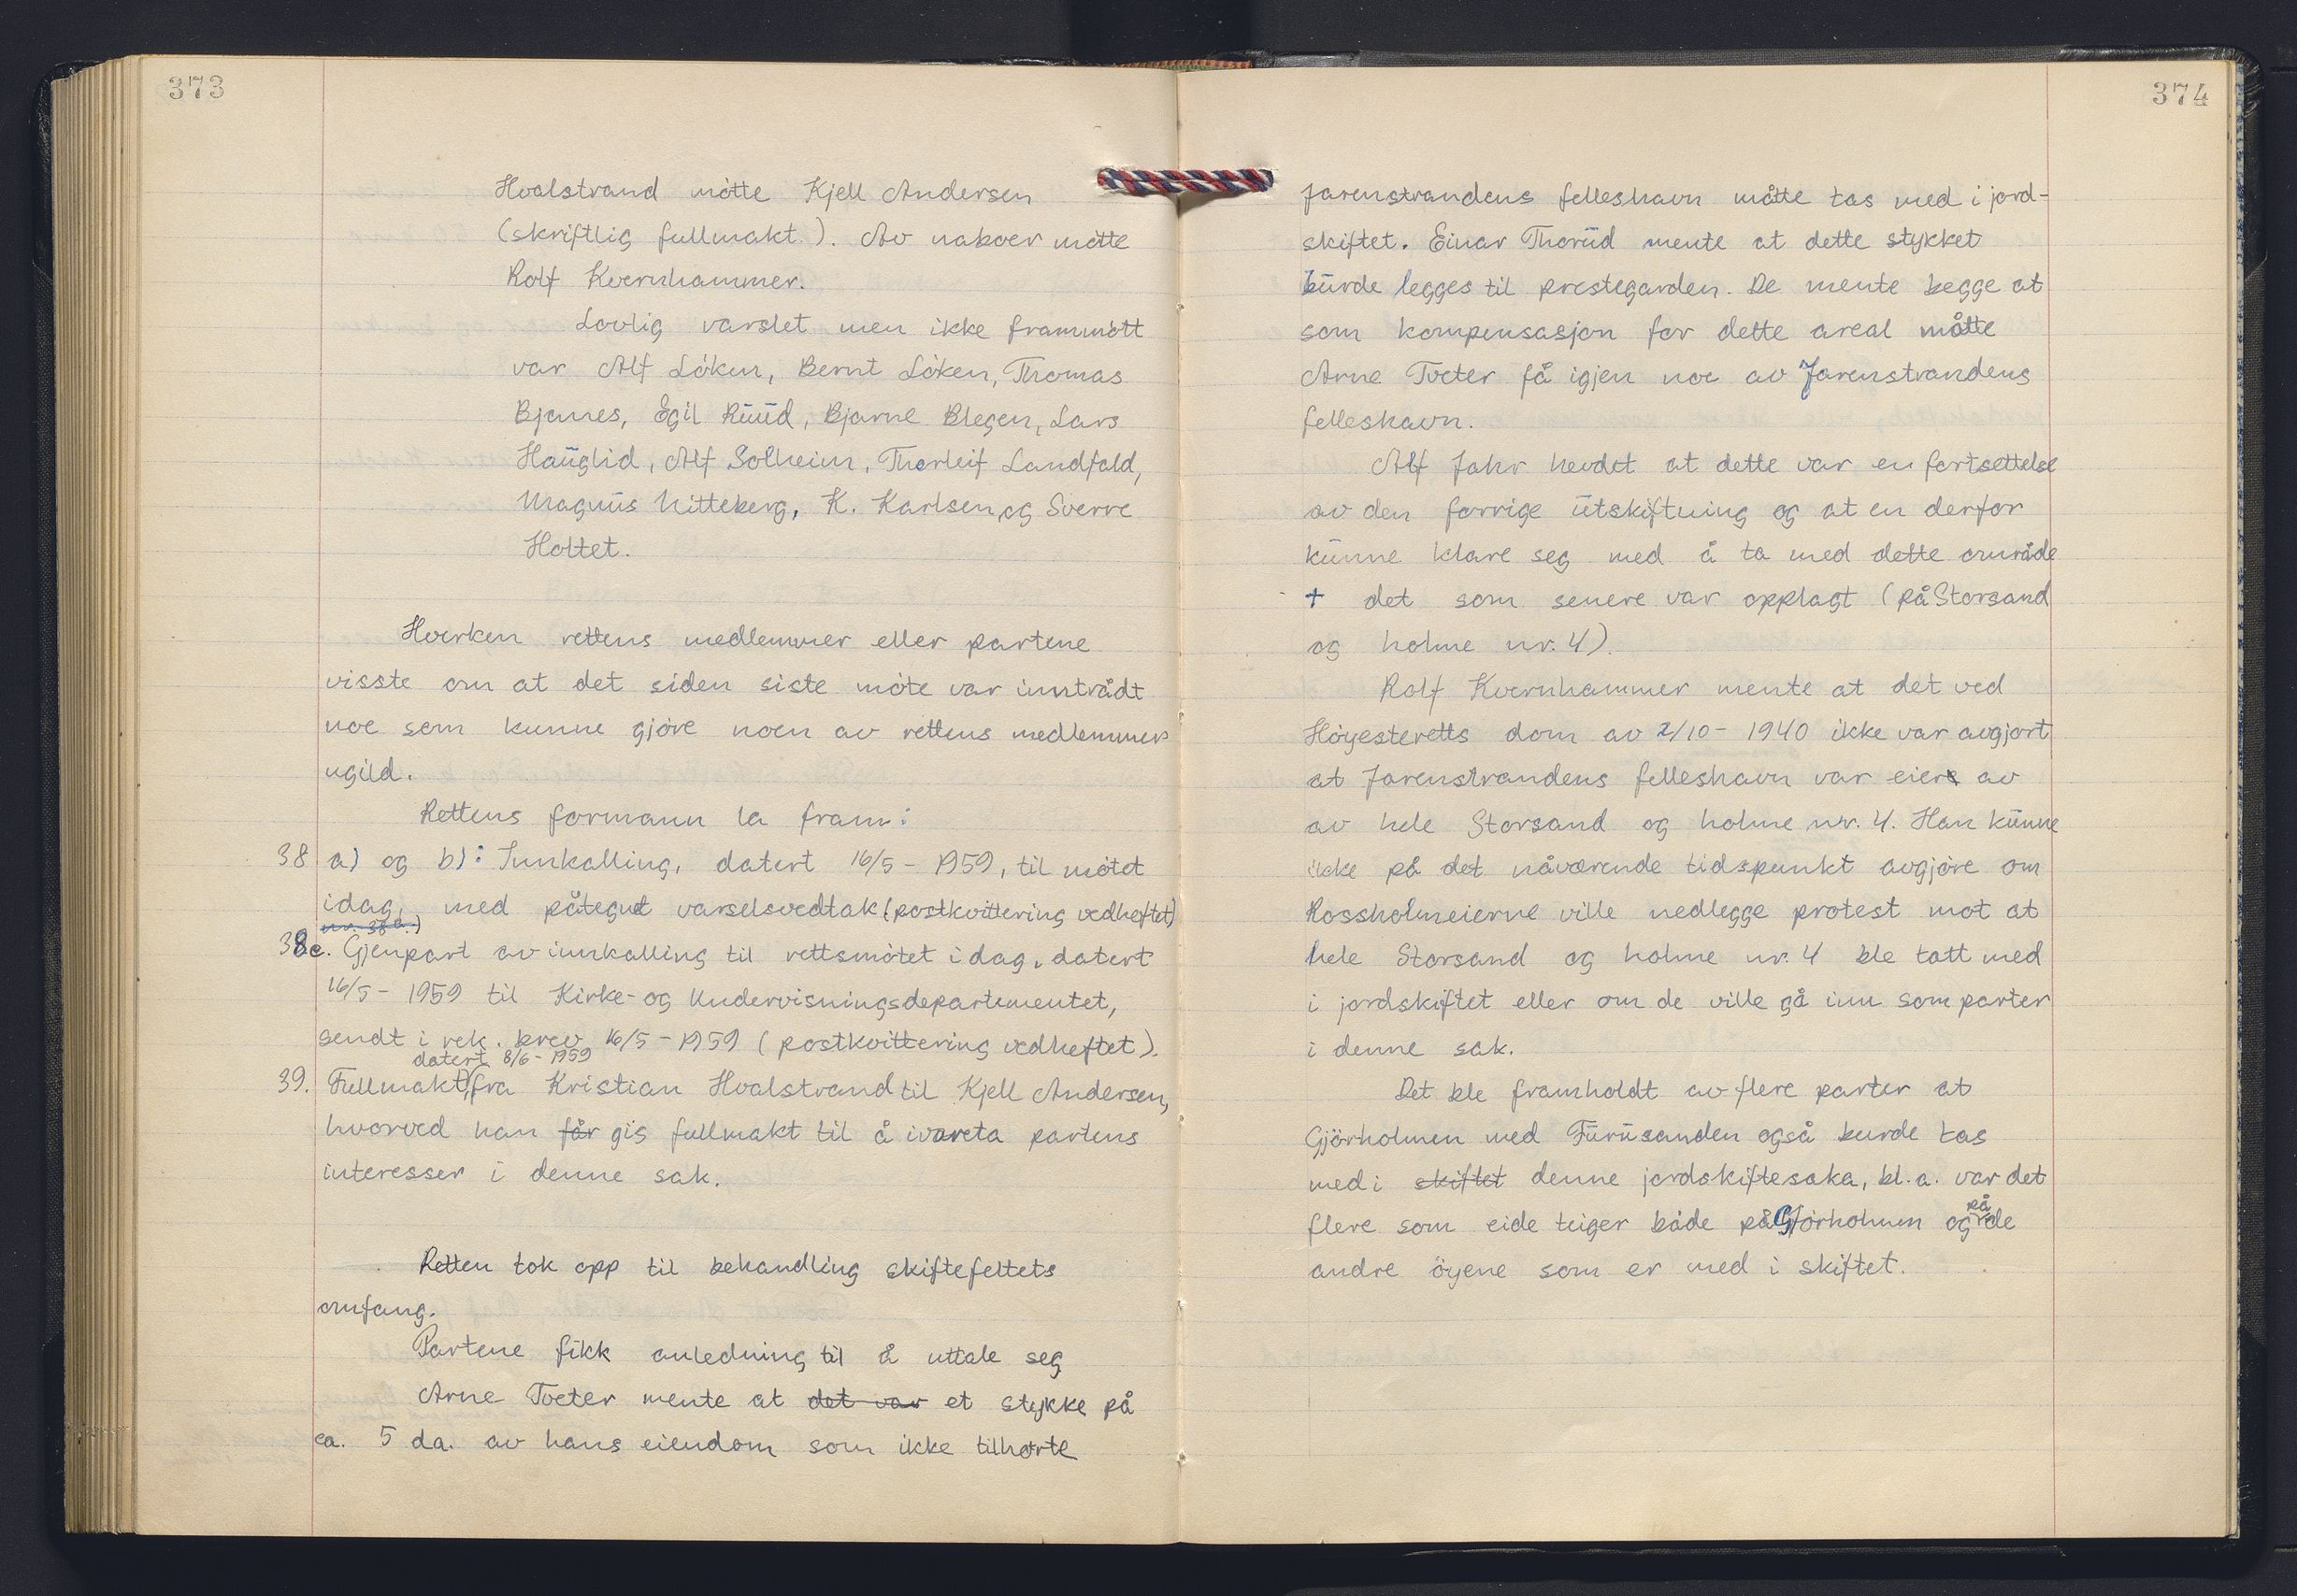 373
Hvalstrand møtte Kjell Andersen
(skriftlig fullmakt.). Av naboer møtte
Rolf Kvernhammer.
Lovlig varslet men ikke frammøtt
var Alf Löken, Bernt Löken, Thomas
Bjanes, Egil Rüüd, Bjarne Blegen, Lars
Haüglid, Alf Solheim, Thorleif Landfald,
Magnüs Nitteberg, K. Karlsen og Sverre
Holtet.
Hverken rettens medlemmer eller partene
visste om at det siden siste møte var inntrådt
noe som kunne gjøre noen av rettens medlemmer
ugild.
Rettens formann la fram:
38 a) og b): Innkalling, datert 16/5 - 1959, til møtet
idag, med påtegnet varselsvedtak (postkvittering vedheftet)
nr. 38 a.)
38c. Gjenpart av innkalling til rettsmøtet idag, datert
16/5 - 1959 til Kirke- og Undervisningsdepartementet,
sendt i rek. brev 16/5 - 1959 (postkvittering vedheftet).
datert 8/6 - 1959
39. Fullmakt, fra Kristian Hvalstrand til Kjell Andersen,
hvorved han får gis fullmakt til å ivareta partens
interesser i denne sak.
Retten tok opp til behandling skiftefeltets
omfang.
Partene fikk anledning til å uttale seg
Arne Tveter mente at det var et stykke på
ca. 5 da. av hans eiendom som ikke tilhørte
374
Jarenstrandens felleshavn måtte tas med i jord-
skiftet. Einar Thorüd mente at dette stykket
bürde legges til prestegarden. De mente begge at
som kompensasjon for dette areal måtte
Arne Tveter få igjen noe av Jarenstrandens
felleshavn.
Alf Jahr hevdet at dette var en fortsettelse
av den forrige ütskiftning og at en derfor
künne klare seg med å ta med dette område
+ det som senere var opplagt (på Storsand
og holme nr. 4).
Rolf Kvernhammer mente at det ved
Høyesteretts dom av 2/10 - 1940 ikke var avgjort
at Jarenstrandens felleshavn var eier av
av hele Storsand og holme nr. 4. Han künne
ikke på det nåværende tidspunkt avgjøre om
Rossholmeierne ville nedlegge protest mot at
hele Storsand og holme nr. 4 ble tatt med
i jordskiftet eller om de ville gå inn som parter
i denne sak.
Det ble framholdt av flere parter at
Gjörholmen med Fürüsanden også burde tas
med i skiftet denne jordskiftesaka, bl.a. var det
på
flere som eide teiger både på Gjörholmen og de
andre öyene som er med i skiftet.